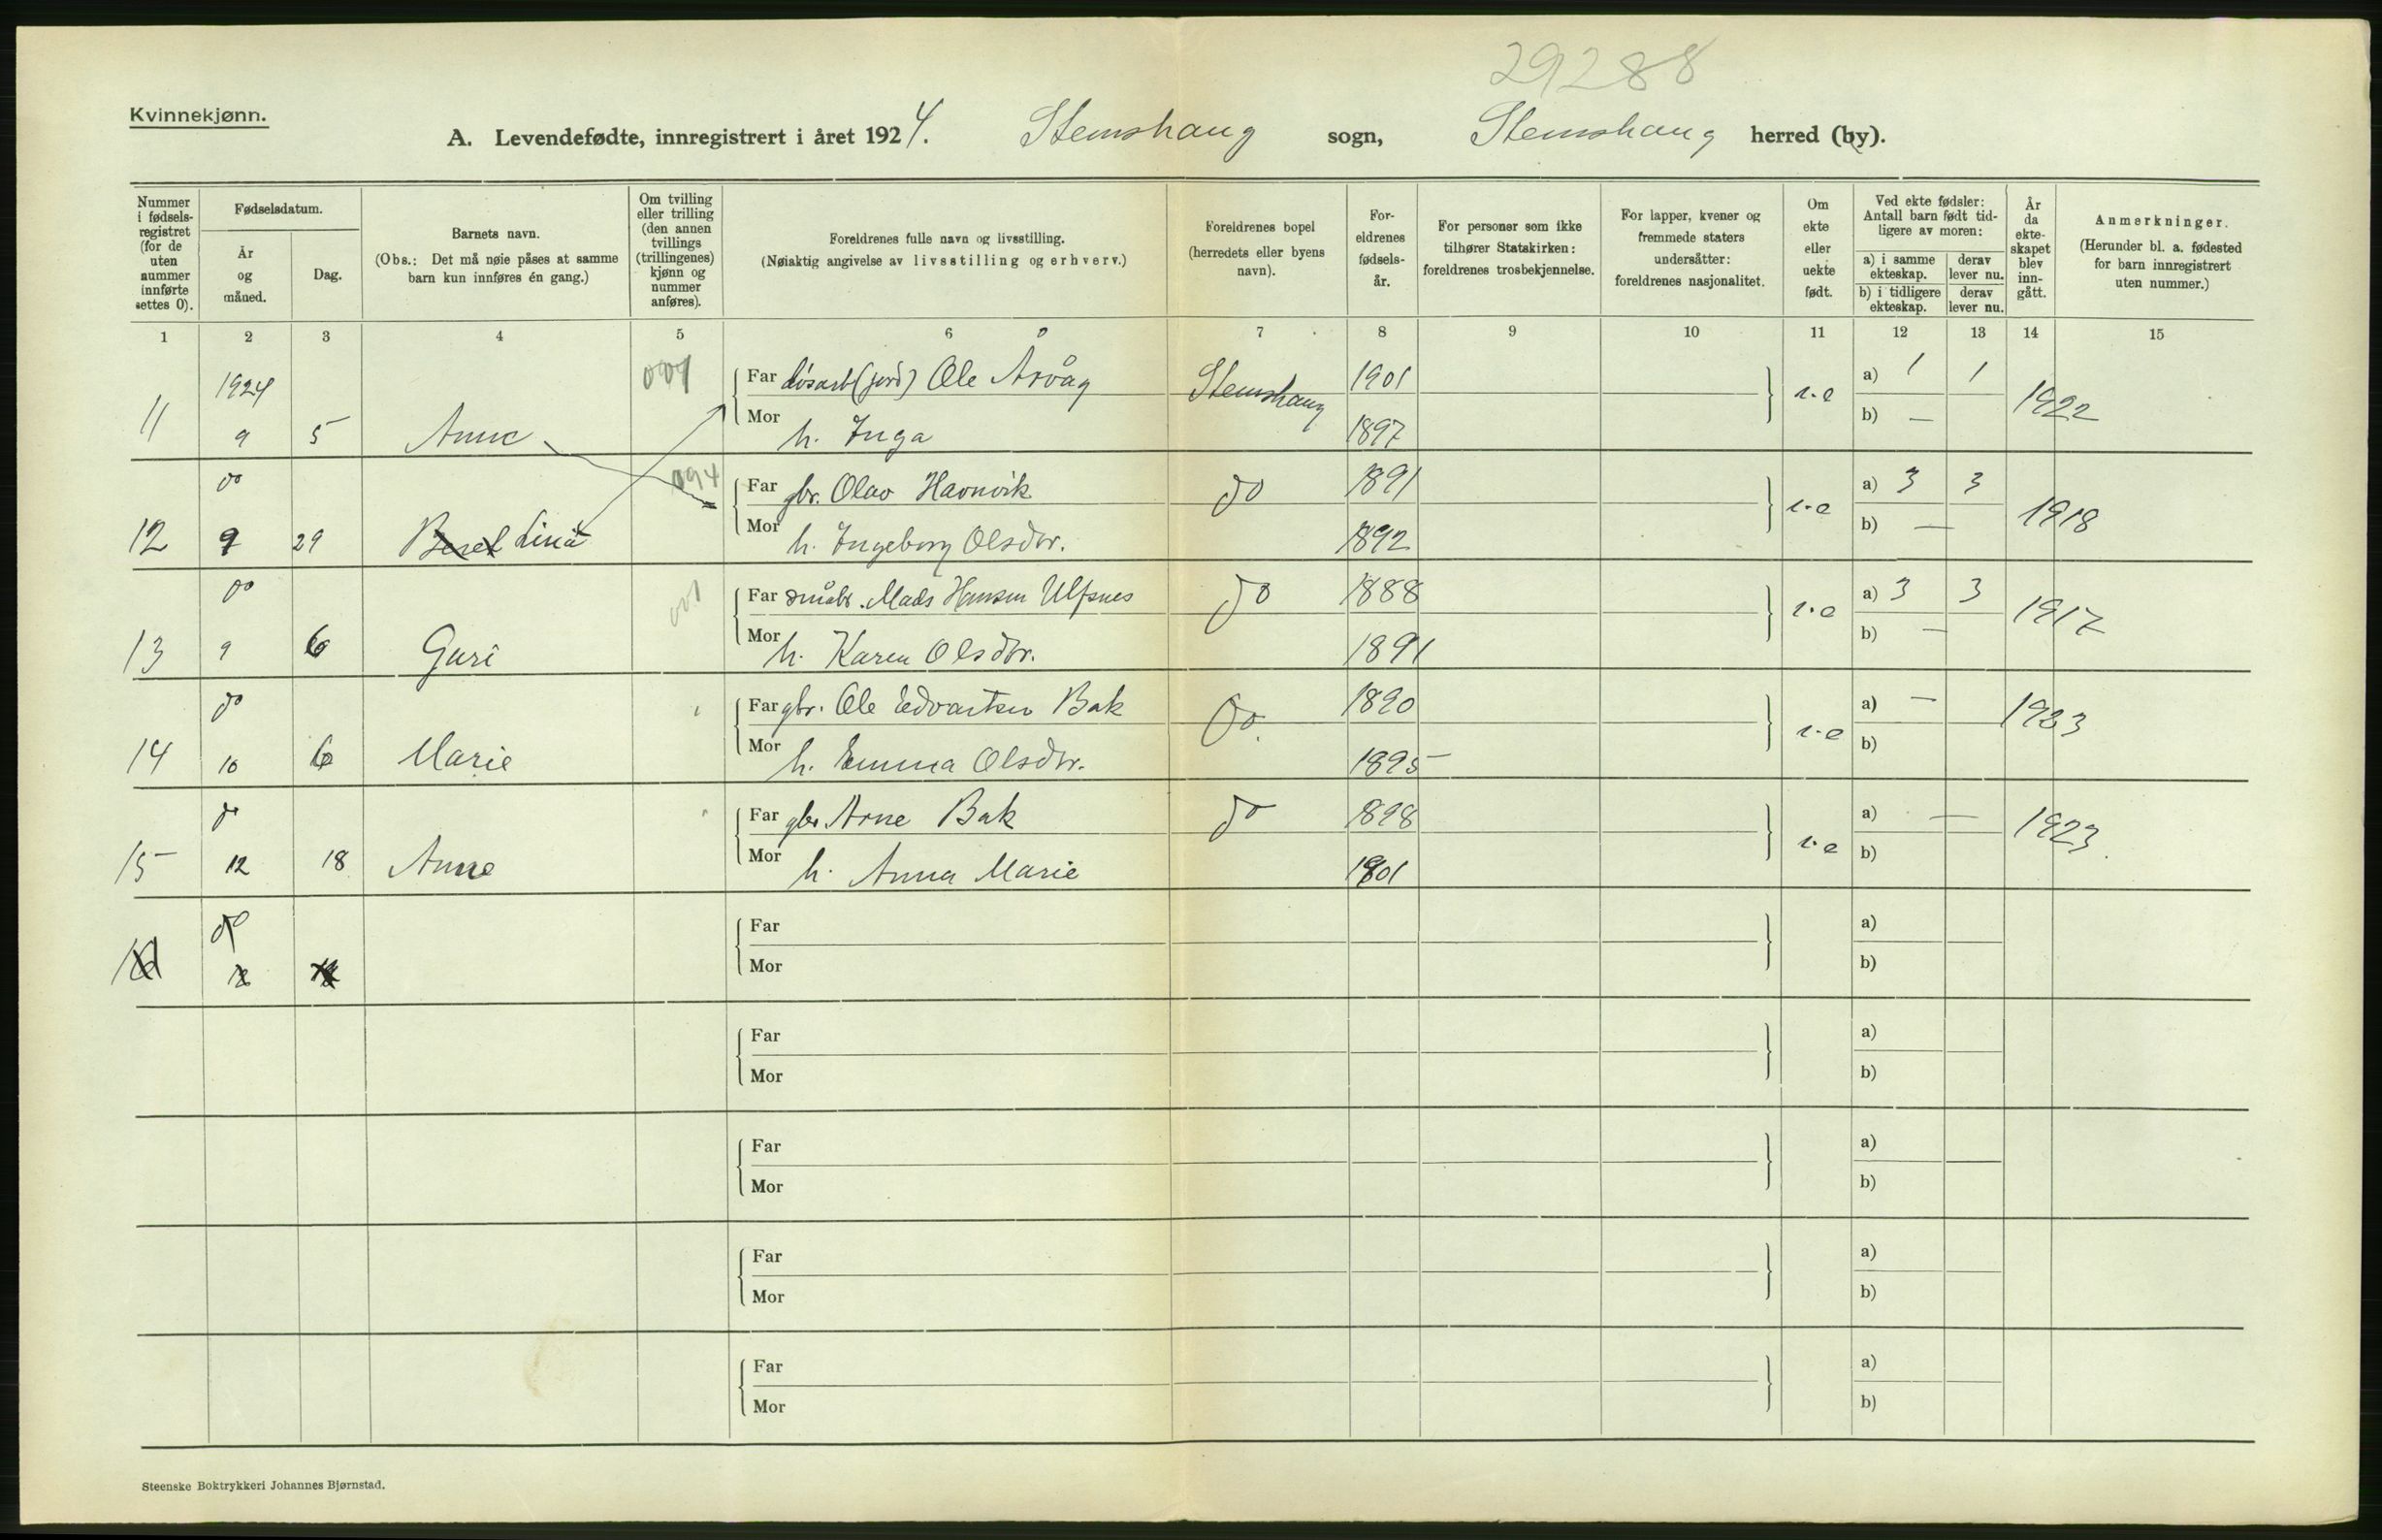 29288
Kvinnekjønn.
A. Levendefødte, innregistrert i året 1924. Stemshaug sogn, Stemshaug herred (by).
Nummer i fødsels-registret (for de uten nummer innførte settes 0).
Fødselsdatum.
År og måned.
Dag.
Barnets navn.
(Obs.: Det må nøie påses at samme barn kun innføres én gang.)
Om tvilling eller trilling (den annen tvillings (trillingenes) kjønn og nummer anføres).
Foreldrenes fulle navn og livsstilling.
(Nøiaktig angivelse av livsstilling og erhverv.)
Foreldrenes bopel (herredets eller byens navn).
For-eldrenes fødsels-år.
For personer som ikke tilhører Statskirken: foreldrenes trosbekjennelse.
For lapper, kvener og fremmede staters undersåtter: foreldrenes nasjonalitet.
Om ekte eller uekte født.
Ved ekte fødsler: Antall barn født tid-ligere av moren:
a) i samme ekteskap. derav lever nu.
b) i tidligere ekteskap. derav lever nu.
År da ekte-skapet blev inn-gått.
Anmerkninger.
(Herunder bl. a. fødested for barn innregistrert uten nummer.)
1 2 3 4 5 6 7 8 9 10 11 12 13 14 15
1924 Far løsarb (jord) Ole Årvåg Stemshaug 1901 a) 1 1
11 9 5 Anne Mor h. Inga 1897 e b) — 1922
do 094 Far gbr. Olav Havnvik do 1891 a) 3 3
12 9 29 Beret Lina Mor h. Ingeborg Olsdtr. 1892 e b) — 1918
do Far småbr. Mads Hansen Ulfsnes do 1888 a) 3 3
13 9 6 Guri Mor h. Karen Olsdtr. 1891 e b) — 1917
do Far gbr. Ole Edvartsen Bak do. 1890 a) —
14 10 6 Marie Mor h. Emma Olsdtr. 1895 e b) 1923
do Far gbr Arne Bak do 1898 a) —
15 12 18 Anne Mor h. Anna Marie 1901 e b) 1923.
do Far a)
16 12 Mor b)
Far a)
Mor b)
Far a)
Mor b)
Far a)
Mor b)
Far a)
Mor b)
Steenske Boktrykkeri Johannes Bjørnstad.